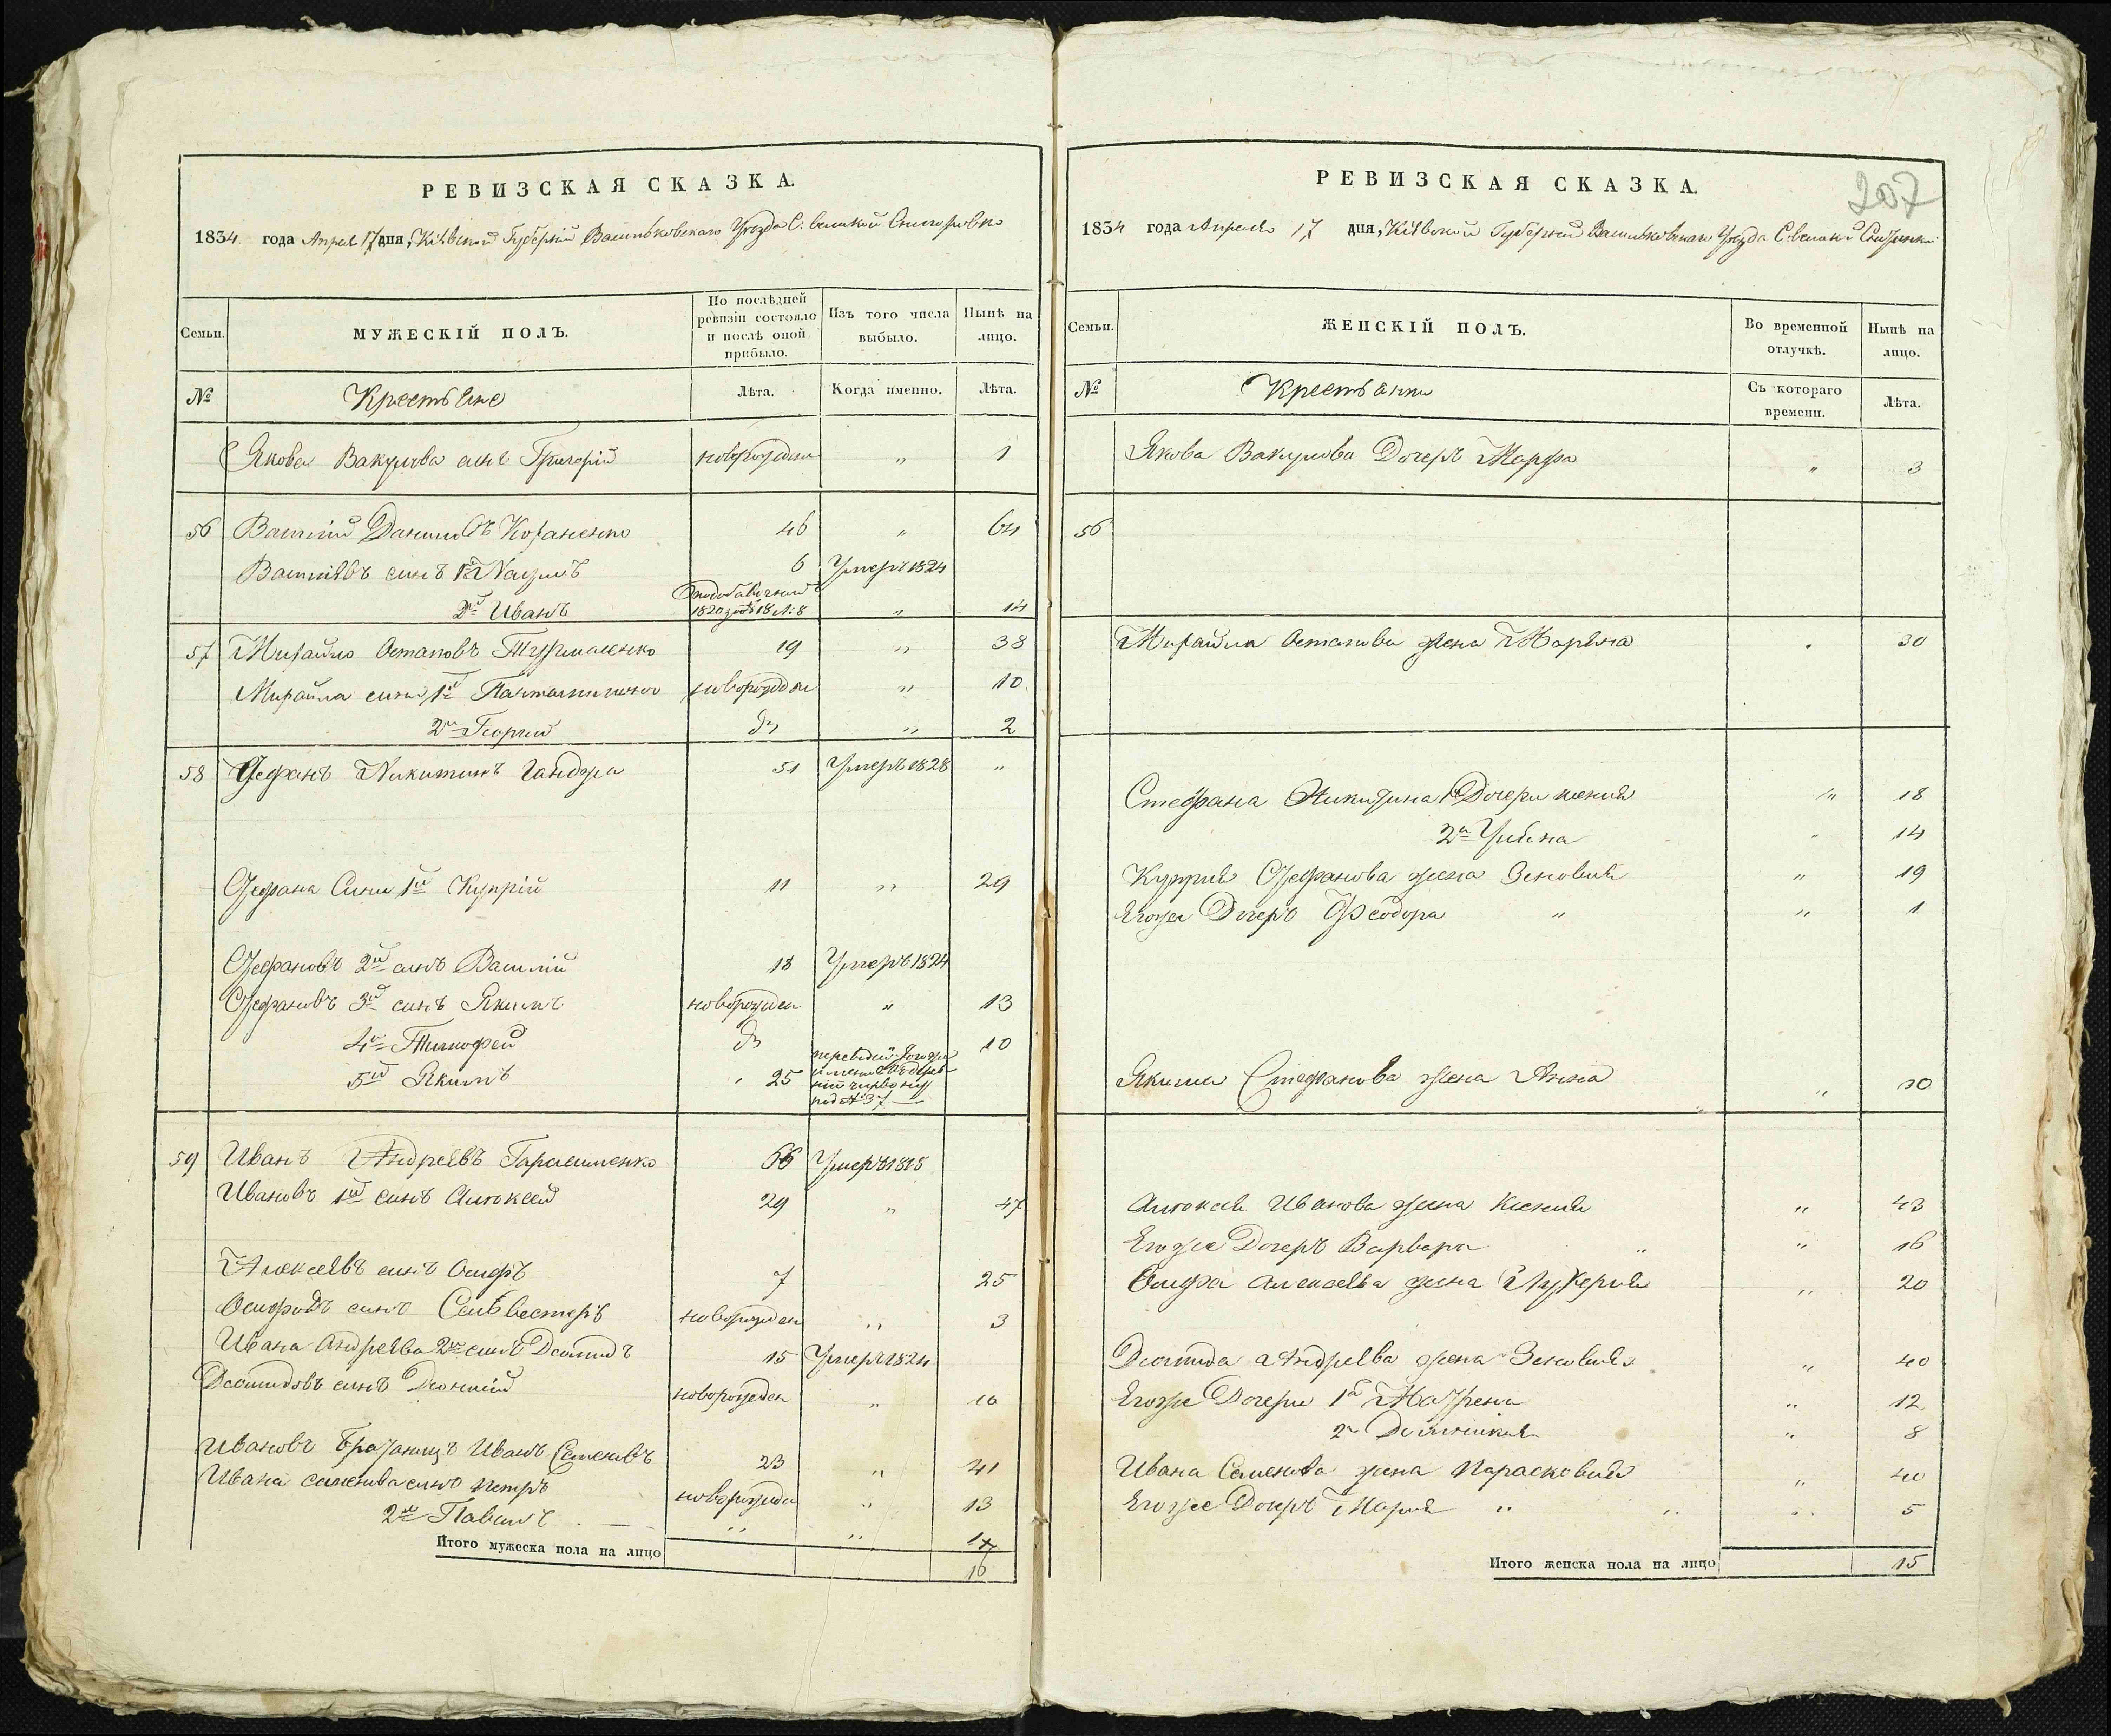 РЕВИЗСКАЯ СКАЗКА.
1834 года Апреля 17 дня, Кіевской Губерніи Васильковскаго Уезда С. великой
МУЖЕСКІЙ ПОЛЪ.
Семьи.
По послѣдней ревизіи состояло и послѣ оной прибыло.
Изъ того числа выбыло.
Нынѣ на лицо.
№ Крестьяне Лѣта. Когда именно. Лѣта.
Якова Вакулова синъ Григорій новорожден " 1
56 Василій Даниловъ 46 " 64
Василіевъ синъ 1й Наумъ 6 Умеръ 1824
2й Иванъ 1820 18 " 14
57 Михайло Остаповъ 19 " 38
Михайла сини 1й новорожден " 10
2й Георгий дз " 2
58 Стефанъ Никитинъ Ганджа 51 Умеръ 1828 "
Стефана Сини 1й Купрій 11 " 29
Стефановъ 2й синъ Василій 18 Умеръ 1824
Стефановъ 3й синъ Якимъ новорожден " 13
4й Тимофей дз 10
5й Якимъ " 25 под № 37
59 Иванъ Андреевъ Гарасименко 66 Умеръ 1815
Ивановъ 1й синъ Алексей 29 " 47
Алексеевъ синъ Осифъ 7 25
Осифовъ синъ Сильвестеръ новорожден " 3
Ивана Андреева 2й синъ Деомидъ 15 Умеръ 1824
Деомидовъ синъ новорожден " 10
Ивановъ Иванъ Семеновъ 23 " 41
Ивана Семенова синъ Петръ новорожден " 13
2й Павилъ " "
Итого мужеска пола на лицо 16
207
РЕВИЗСКАЯ СКАЗКА.
1834 года Апреля 17 дня, Кіевской Губерніи Васильковскаго Уезда С. великой
Семьи.
ЖЕНСКІЙ ПОЛЪ.
Во временной отлучкѣ.
Нынѣ на лицо.
№ Крестьянки Съ котораго времени. Лѣта.
Якова Вакулова Дочеръ Марфа " 3
56
Михайла Остапова жена Марина 30
Стефана Никитина 1я Дочери " 18
2я " 14
Куприя Стефанова жена Зеновия " 19
Егоже Дочеръ Феодора " " 1
Якима Стефанова жена Анна " 30
Алексея Иванова жена Ксения " 43
Егоже Дочеръ Варвара " " 16
Осифа Алексеева жена Лукерия " 20
Деомида Андреева жена Зеновия " 40
Егоже Дочери 1я Матрена " 12
2я " 8
Ивана Семенова жена Парасковия " 40
Егоже Дочеръ Мария " " " 5
Итого женска пола на лицо 15